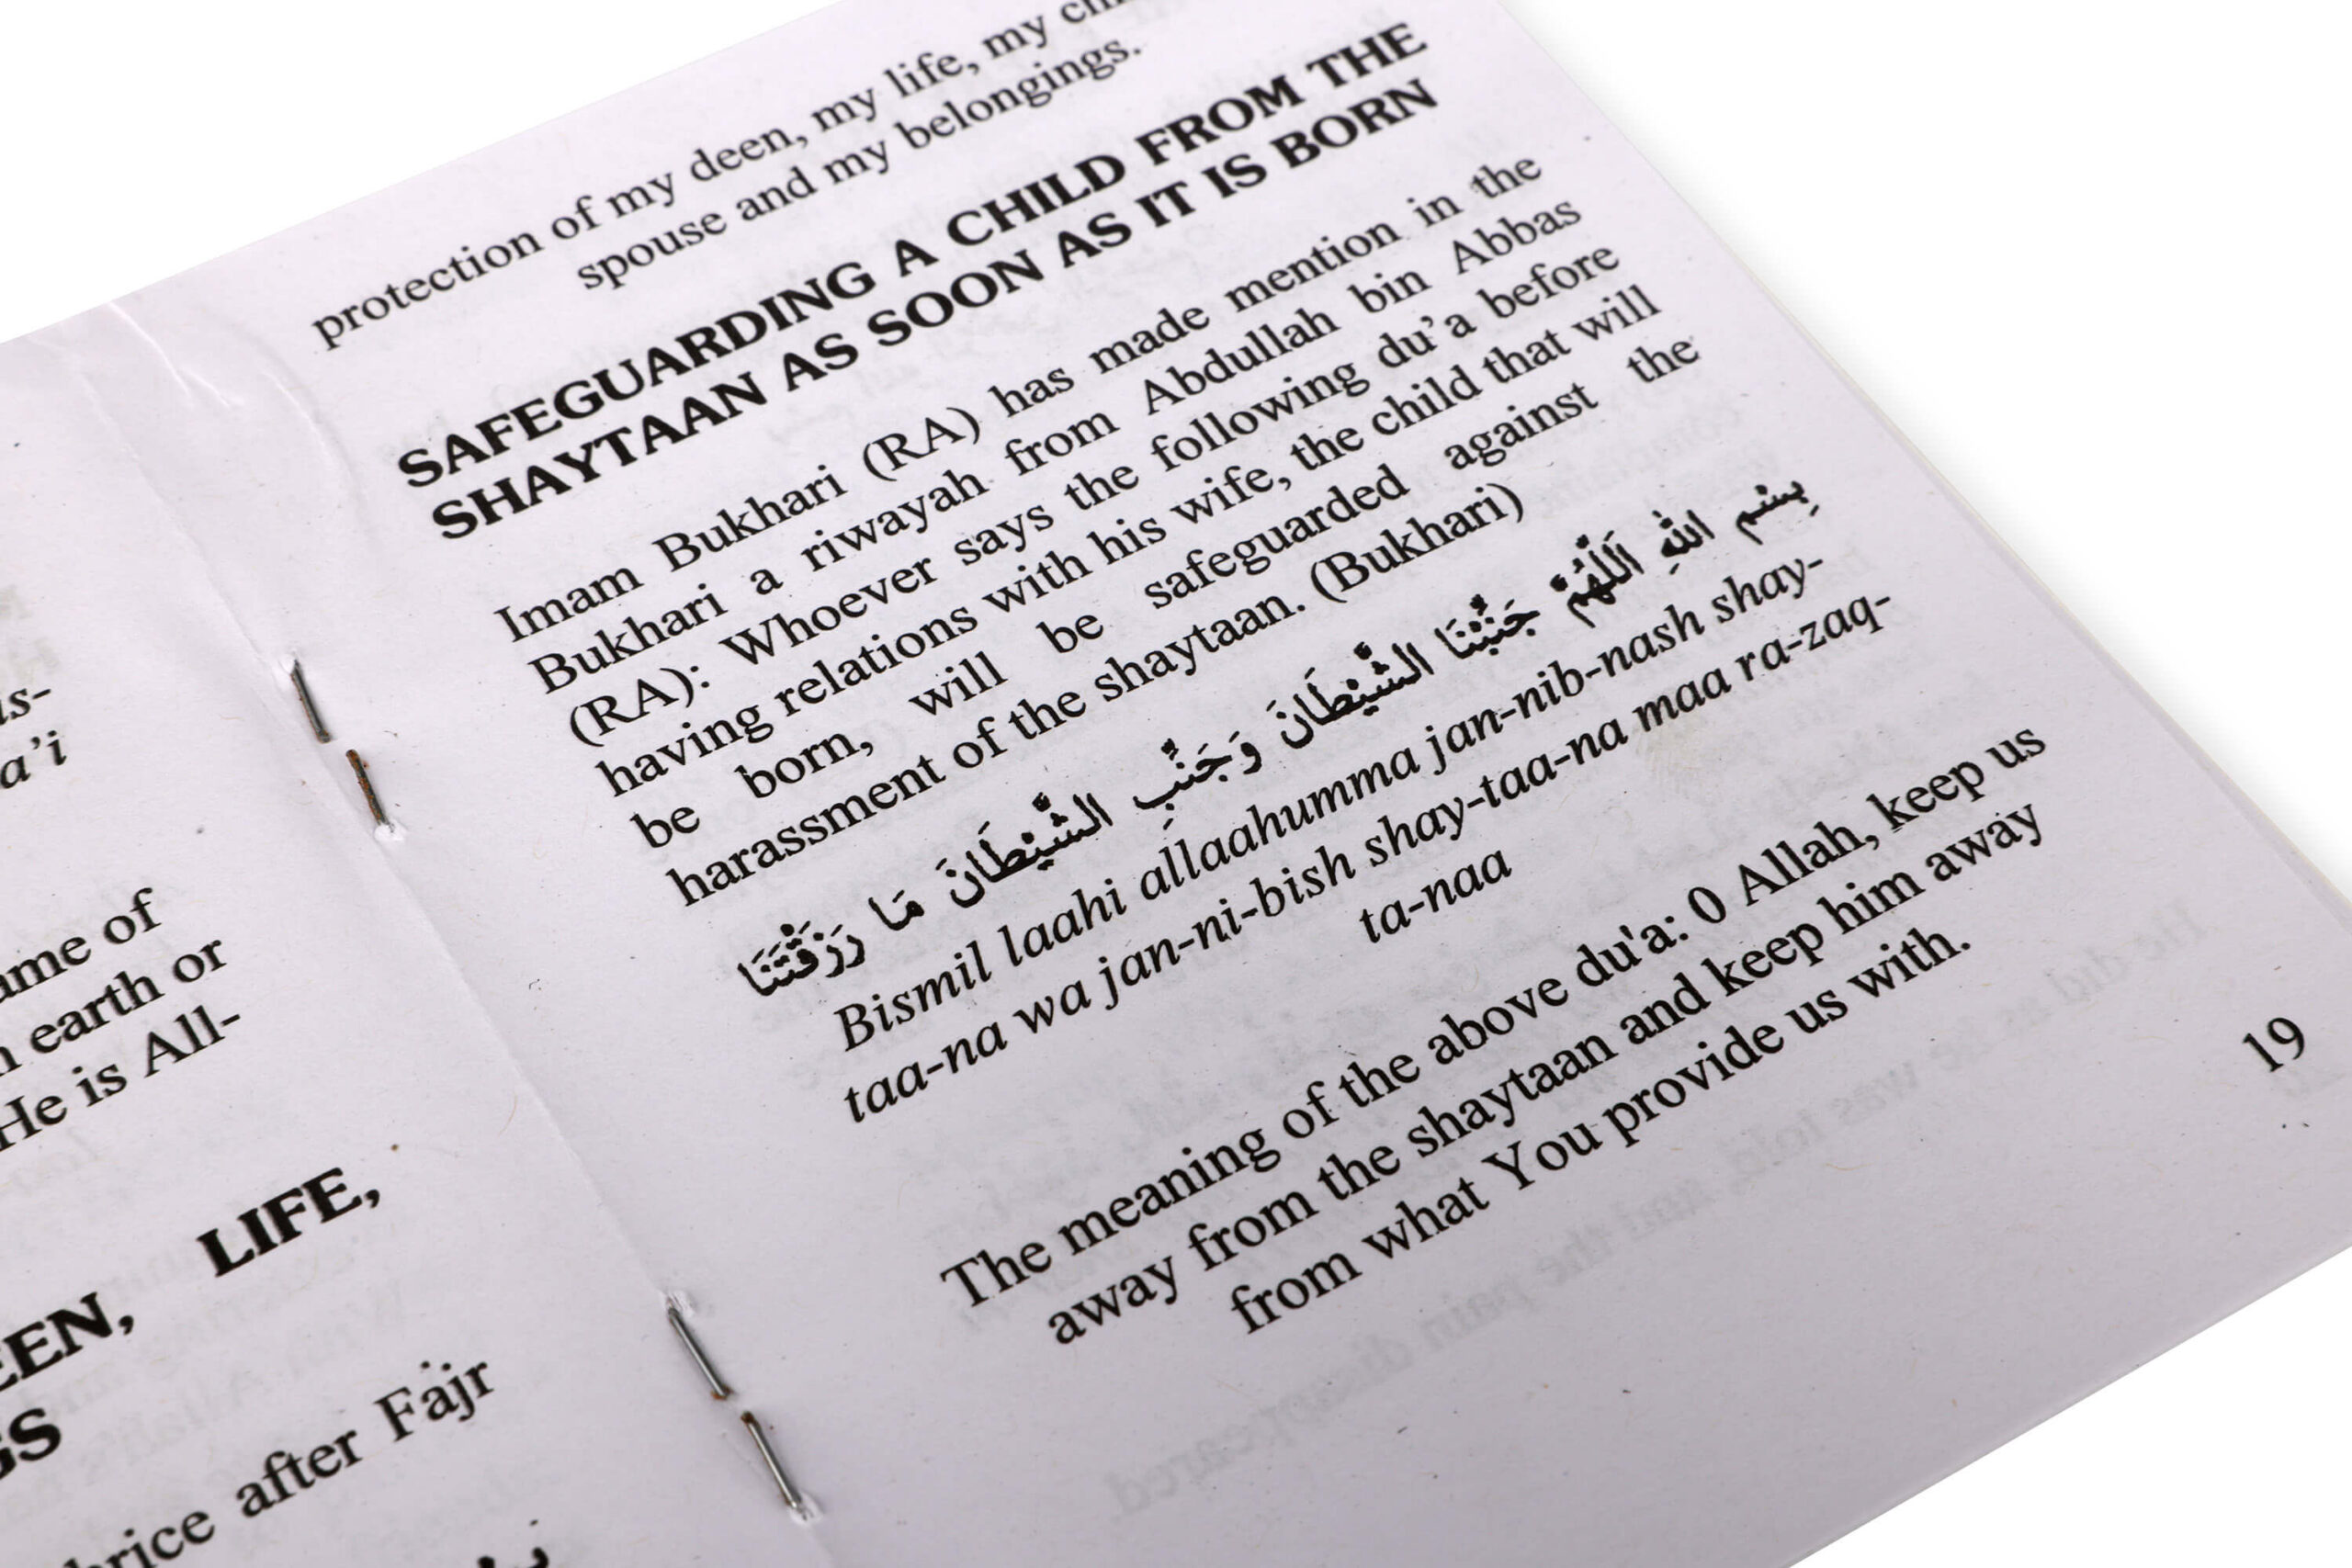 us-
a'i
ame of
earth or
He is All-
LIFE,
GS
after Fajr
protection of my deen, my life, my
spouse and my belongings.
SAFEGUARDING A CHILD FROM THE
SHAYTAAN AS SOON AS IT IS BORN
Imam Bukhari (RA) has made mention in the
Bukhari a riwayah from Abdullah bin Abbas
(RA): Whoever says the following du'a before
having relations with his wife, the child that will
be born, will be safeguarded against the
harassment of the shaytaan. (Bukhari)
بِسْمِ اللهِ اَللّٰهُمَّ جَنِّبْنَا الشَّيْطَانَ وَجَنِّبِ الشَّيْطَانَ مَا رَزَقْتَنَا
Bismil laahi allaahumma jan-nib-nash shay-
taa-na wa jan-ni-bish shay-taa-na maa ra-zaq-
ta-naa
The meaning of the above du'a: 0 Allah, keep us
away from the shaytaan and keep him away
from what You provide us with.
19